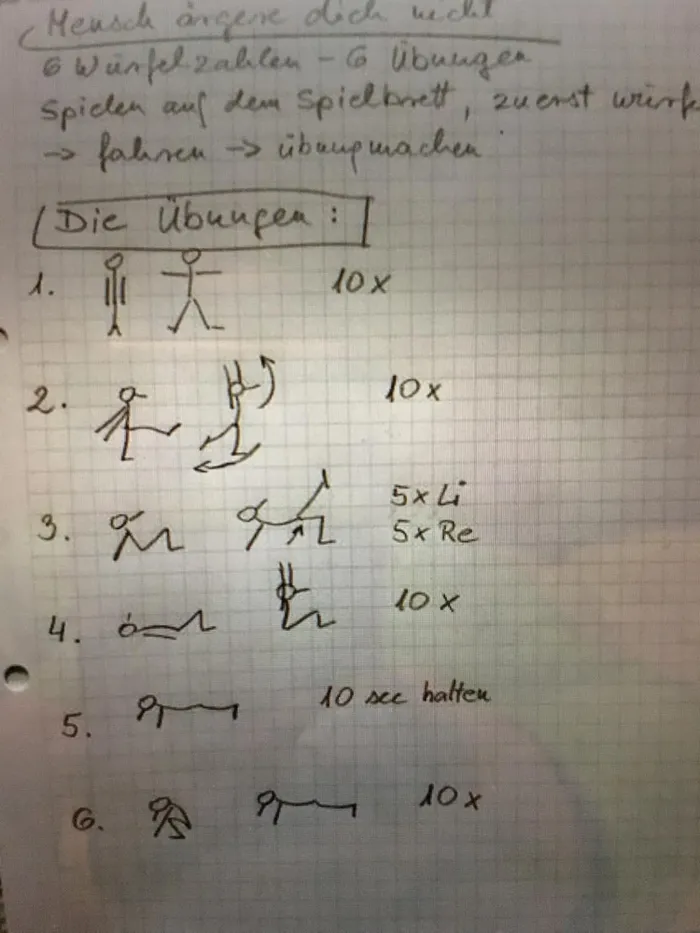 Mensch ärgere dich nicht
6 Würfelzahlen - 6 Übungen
Spielen auf dem Spielbrett, zuerst
→ fahren → Übung machen
Die Übungen:
1. 10x
2. 10x
3. 5x Li
5x Re
4. 10x
5. 10 sec halten
6. 10x